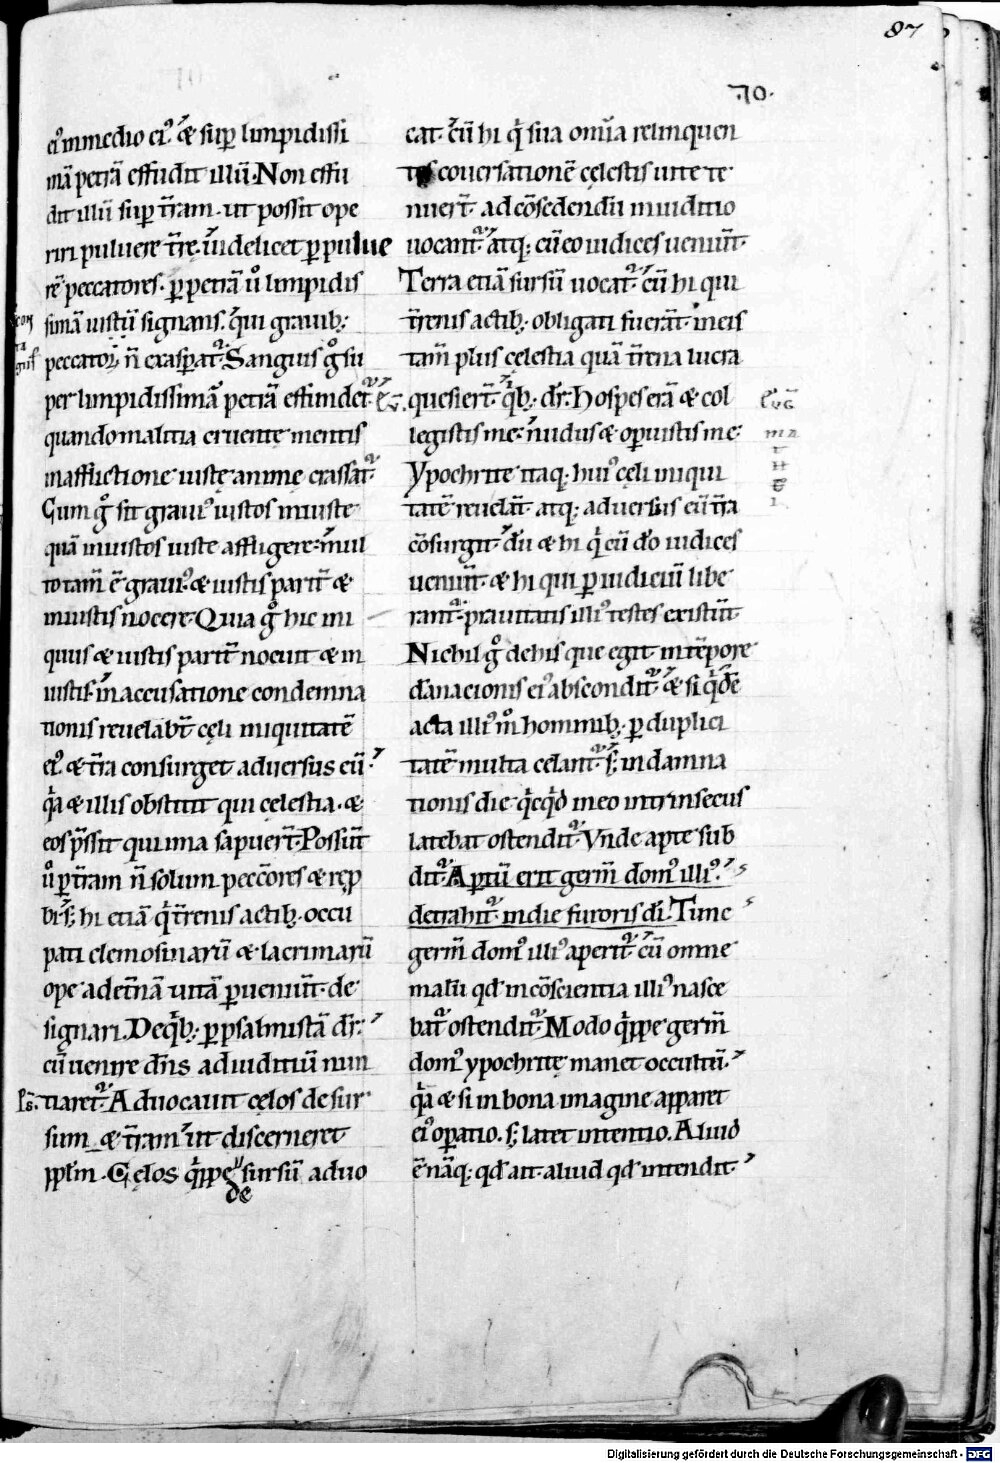 87
70.
ei᷒ in medio ei᷒. ē & sup limpidissi
mā petrā effudit illū. Non effu
dit illū sup t̄ram. ut possit ope
riri puluere t̄re. ūidelicet p pulue
rē peccatores. p petrā ů limpidis
simā iustū signans. q̄ui grauib;
peccator̄ n̄ exaspat᷑. Sanguis g̊ su
per limpidissimā petrā effundet᷑.
quando malitia cruentę mentis
in afflictione iustę animę crassat᷑.
Cum g̊ sit graui᷒ iustos iniuste
quā iniustos iuste affligere. mul
to tam̄ ē graui᷒. & iustis parit̄ &
iniustis nocere. Quia g̊ hic ini
quus & iustis parit̄ nocuit & in
iustis. in accusatione condemna
tionis reuelabt̄ cęli iniquitatē
ei᷒. & t̄ra consurget aduersus eū.
q̄a & illis obstitit qui cęlestia. &
eos p̄ssit qui ima sapuer̄t. Possūt
ů p t̄ram n̄ solum pecc̄ores & rep
bi. s; hi etiā q̄ t̄renis actib; occu
pati elemosinarū & lacrimarū
ope ad et̄nā uitā pueniūt. de
signari. De q̄b; p psalmistā dr̄.
cū uenire dn̄s ad iuditiū nun
Ps. tiaret᷑. Aduocauit cęlos de sur
sum. & t̄ram ut discerneret
pplm̄. Cęlos q̄ppe sursū aduo
de
cat. cū hi q̄ sua om̄ia relinquen
tes couersationē cęlestis uite te
nuer̄t. ad cōsedendū in iuditio
uocant᷑. atq; cū eo iudices ueniūt.
Terra etiā sursū uocat᷑. cū hi qui
t̄renis actib; obligati fuerāt. in eis
tam̄ plus cęlestia quā t̄rena lucra
quesier̄t. q̄b; dr̄. Hospes erā & col
legistis me. nudus & opuistis me.
Ypochrite itaq; hui᷒ cęli iniqui
tatē reuelāt. atq; aduersus eū t̄ra
cōsurgit. dū & hi q̄ cū dō iudices
ueniūt. & hi qui p iudiciū libe
rant᷑. prauitatis illi᷒ testes existūt.
Nichil g̊ de his que egit in tēpore
dānacionis ei᷒ abscondit᷑. & si q̄dē
acta illi᷒ m̊ hominib; p duplici
tatē multa celant᷑. s; in damna
tionis die q̄cq̄d in eo intrinsecus
latebat ostendit᷑. Vnde apte sub
dit᷑. Aptū erit germ̄ dom᷒ illi᷒.
detrahit᷑ in die furoris dī. Tunc
germ̄ dom᷒ illi᷒ aperit᷑. cū omne
malū qd̄ in cōscientia illi᷒ nasce
bat᷑ ostendit᷑. Modo q̄ppe germ̄
dom᷒ ypochritę manet occultū.
q̄a & si in bona imagine apparet
ei᷒ opatio. s; latet intentio. Aliud
ē nāq; qd̄ ait. aliud qd̄ intendit.
Digitalisierung gefördert durch die Deutsche Forschungsgemeinschaft - DFG